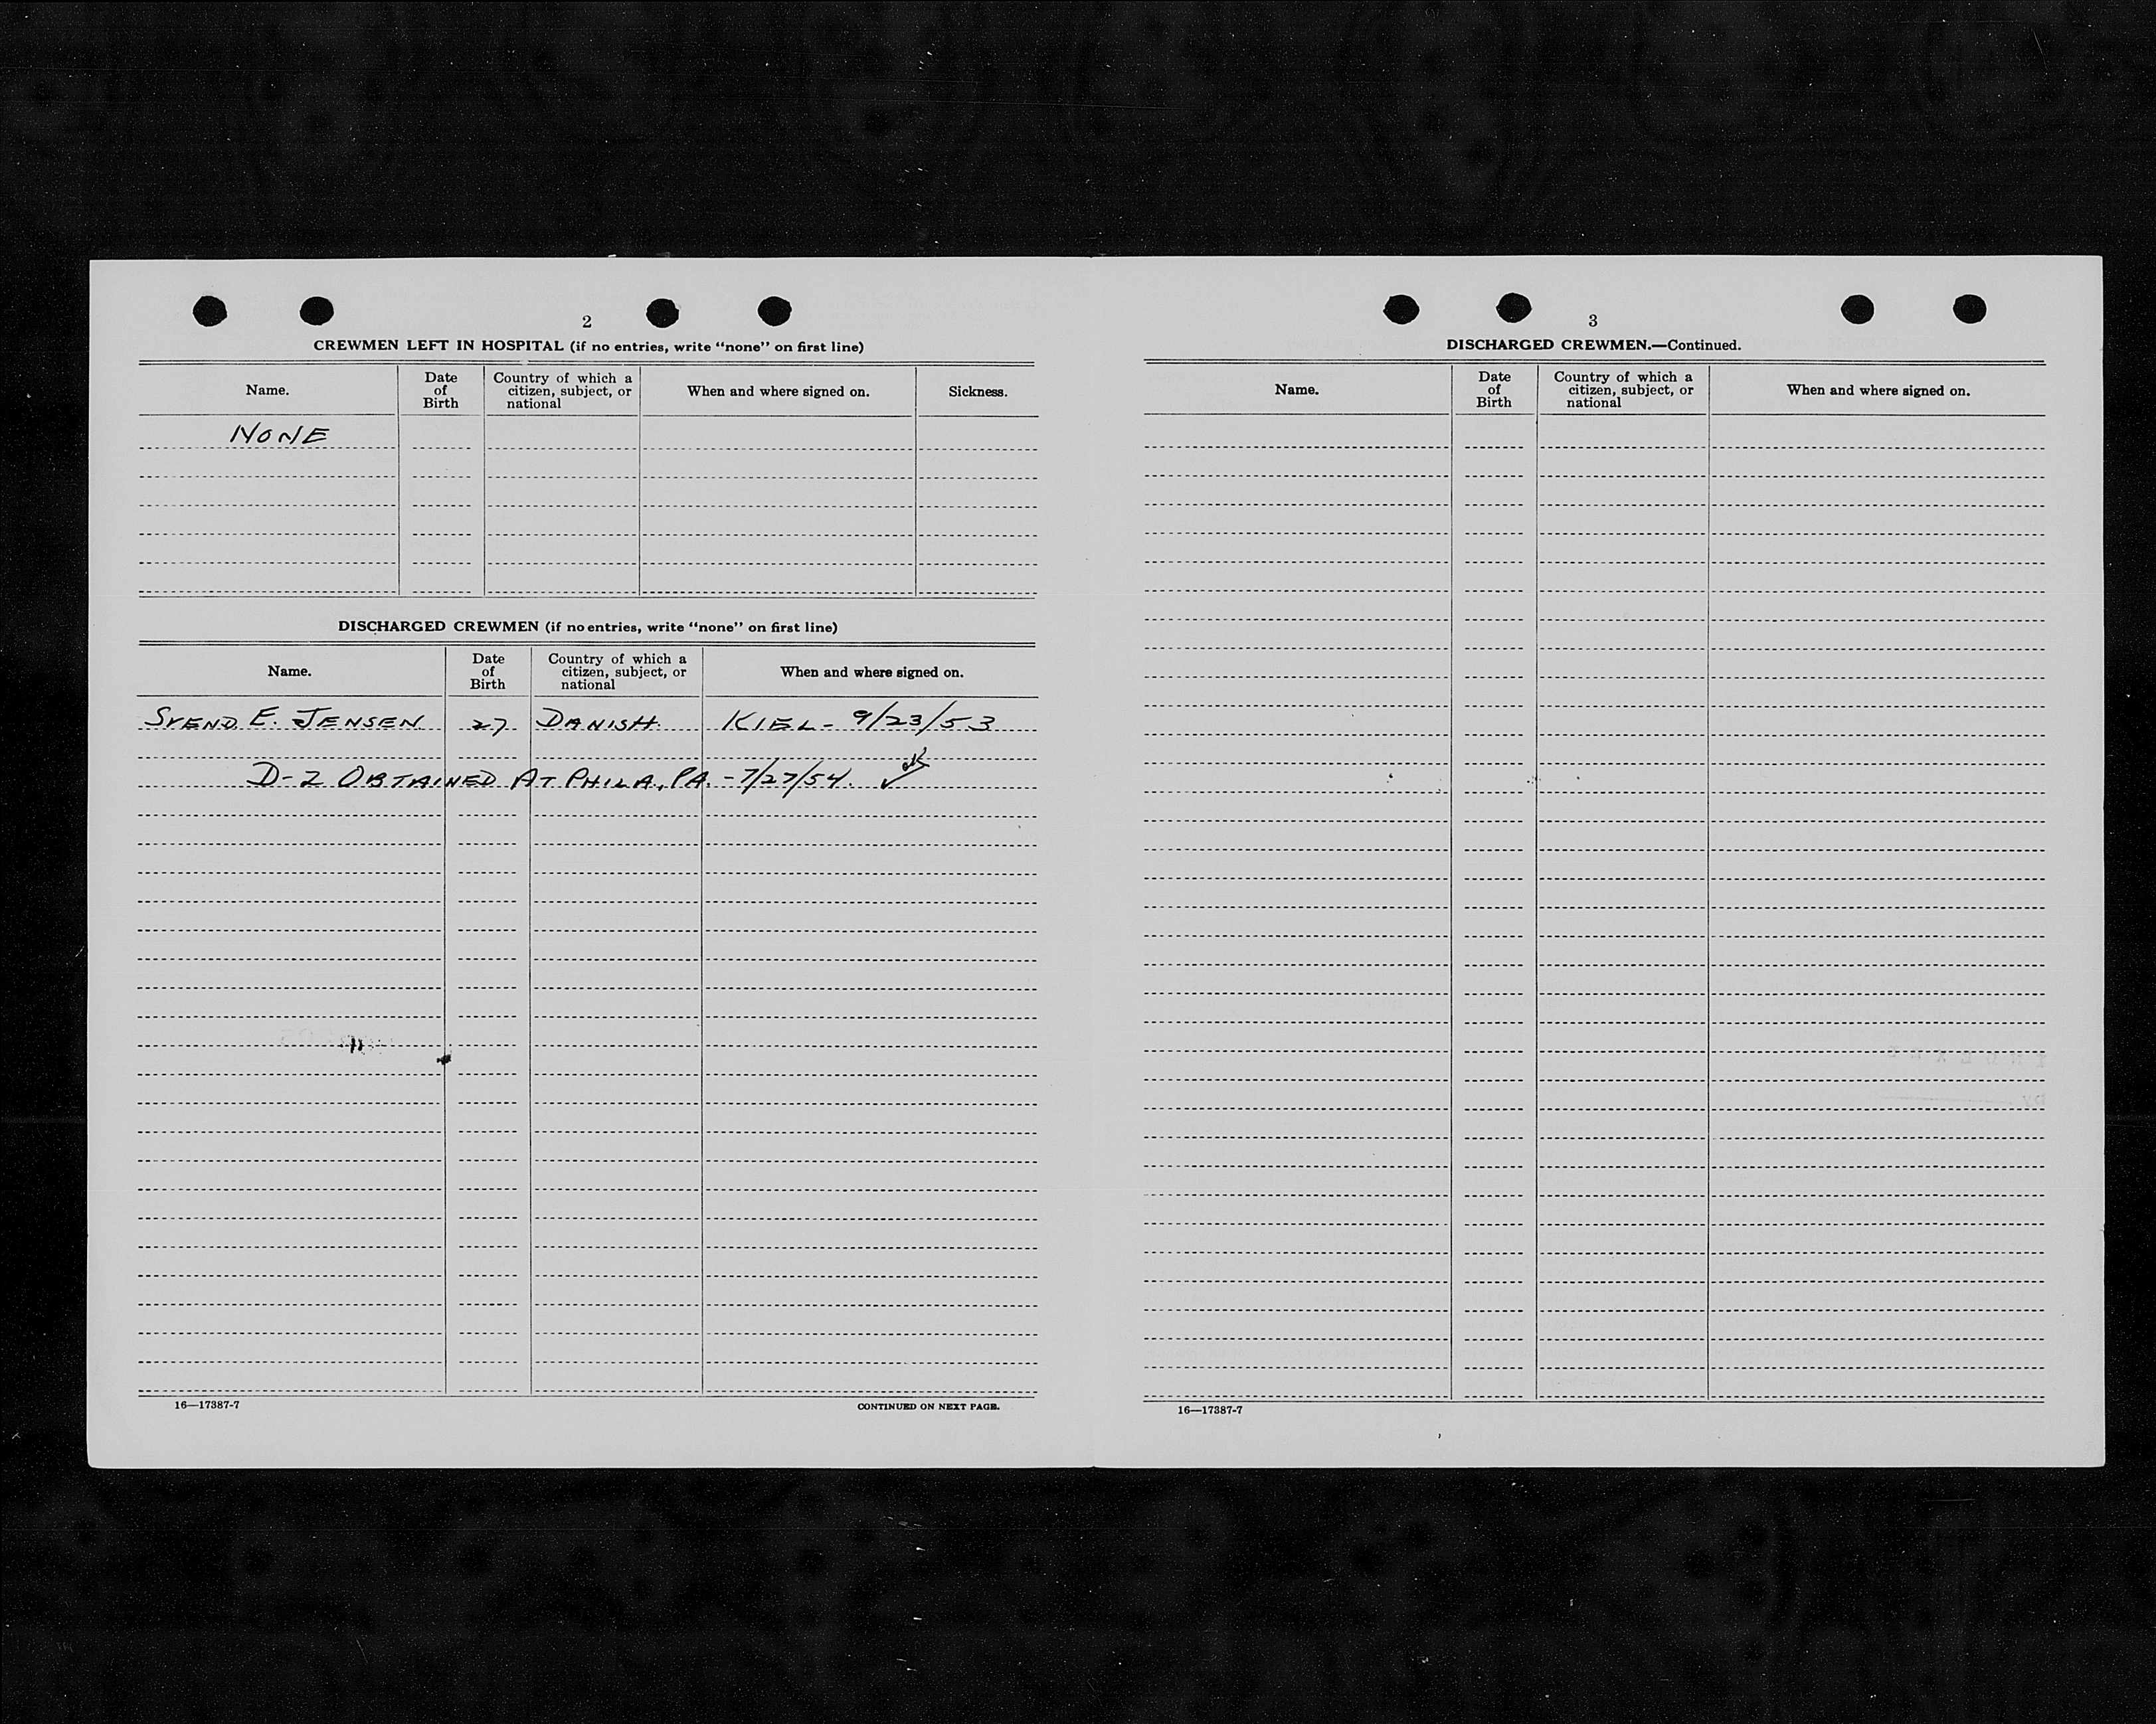 2
CREWMEN LEFT IN HOSPITAL (if no entries, write “none” on first line)
Name. Date of Birth Country of which a citizen, subject, or national When and where signed on. Sickness.
NONE
DISCHARGED CREWMEN (if no entries, write “none” on first line)
Name. Date of Birth Country of which a citizen, subject, or national When and where signed on.
SVEND E. JENSEN 27 DANISH KIEL - 9/23/53
D-2 OBTAINED AT PHILA., PA. - 7/27/54. ok
16—17387-7 CONTINUED ON NEXT PAGE.
3
DISCHARGED CREWMEN.—Continued.
Name. Date of Birth Country of which a citizen, subject, or national When and where signed on.
16—17387-7